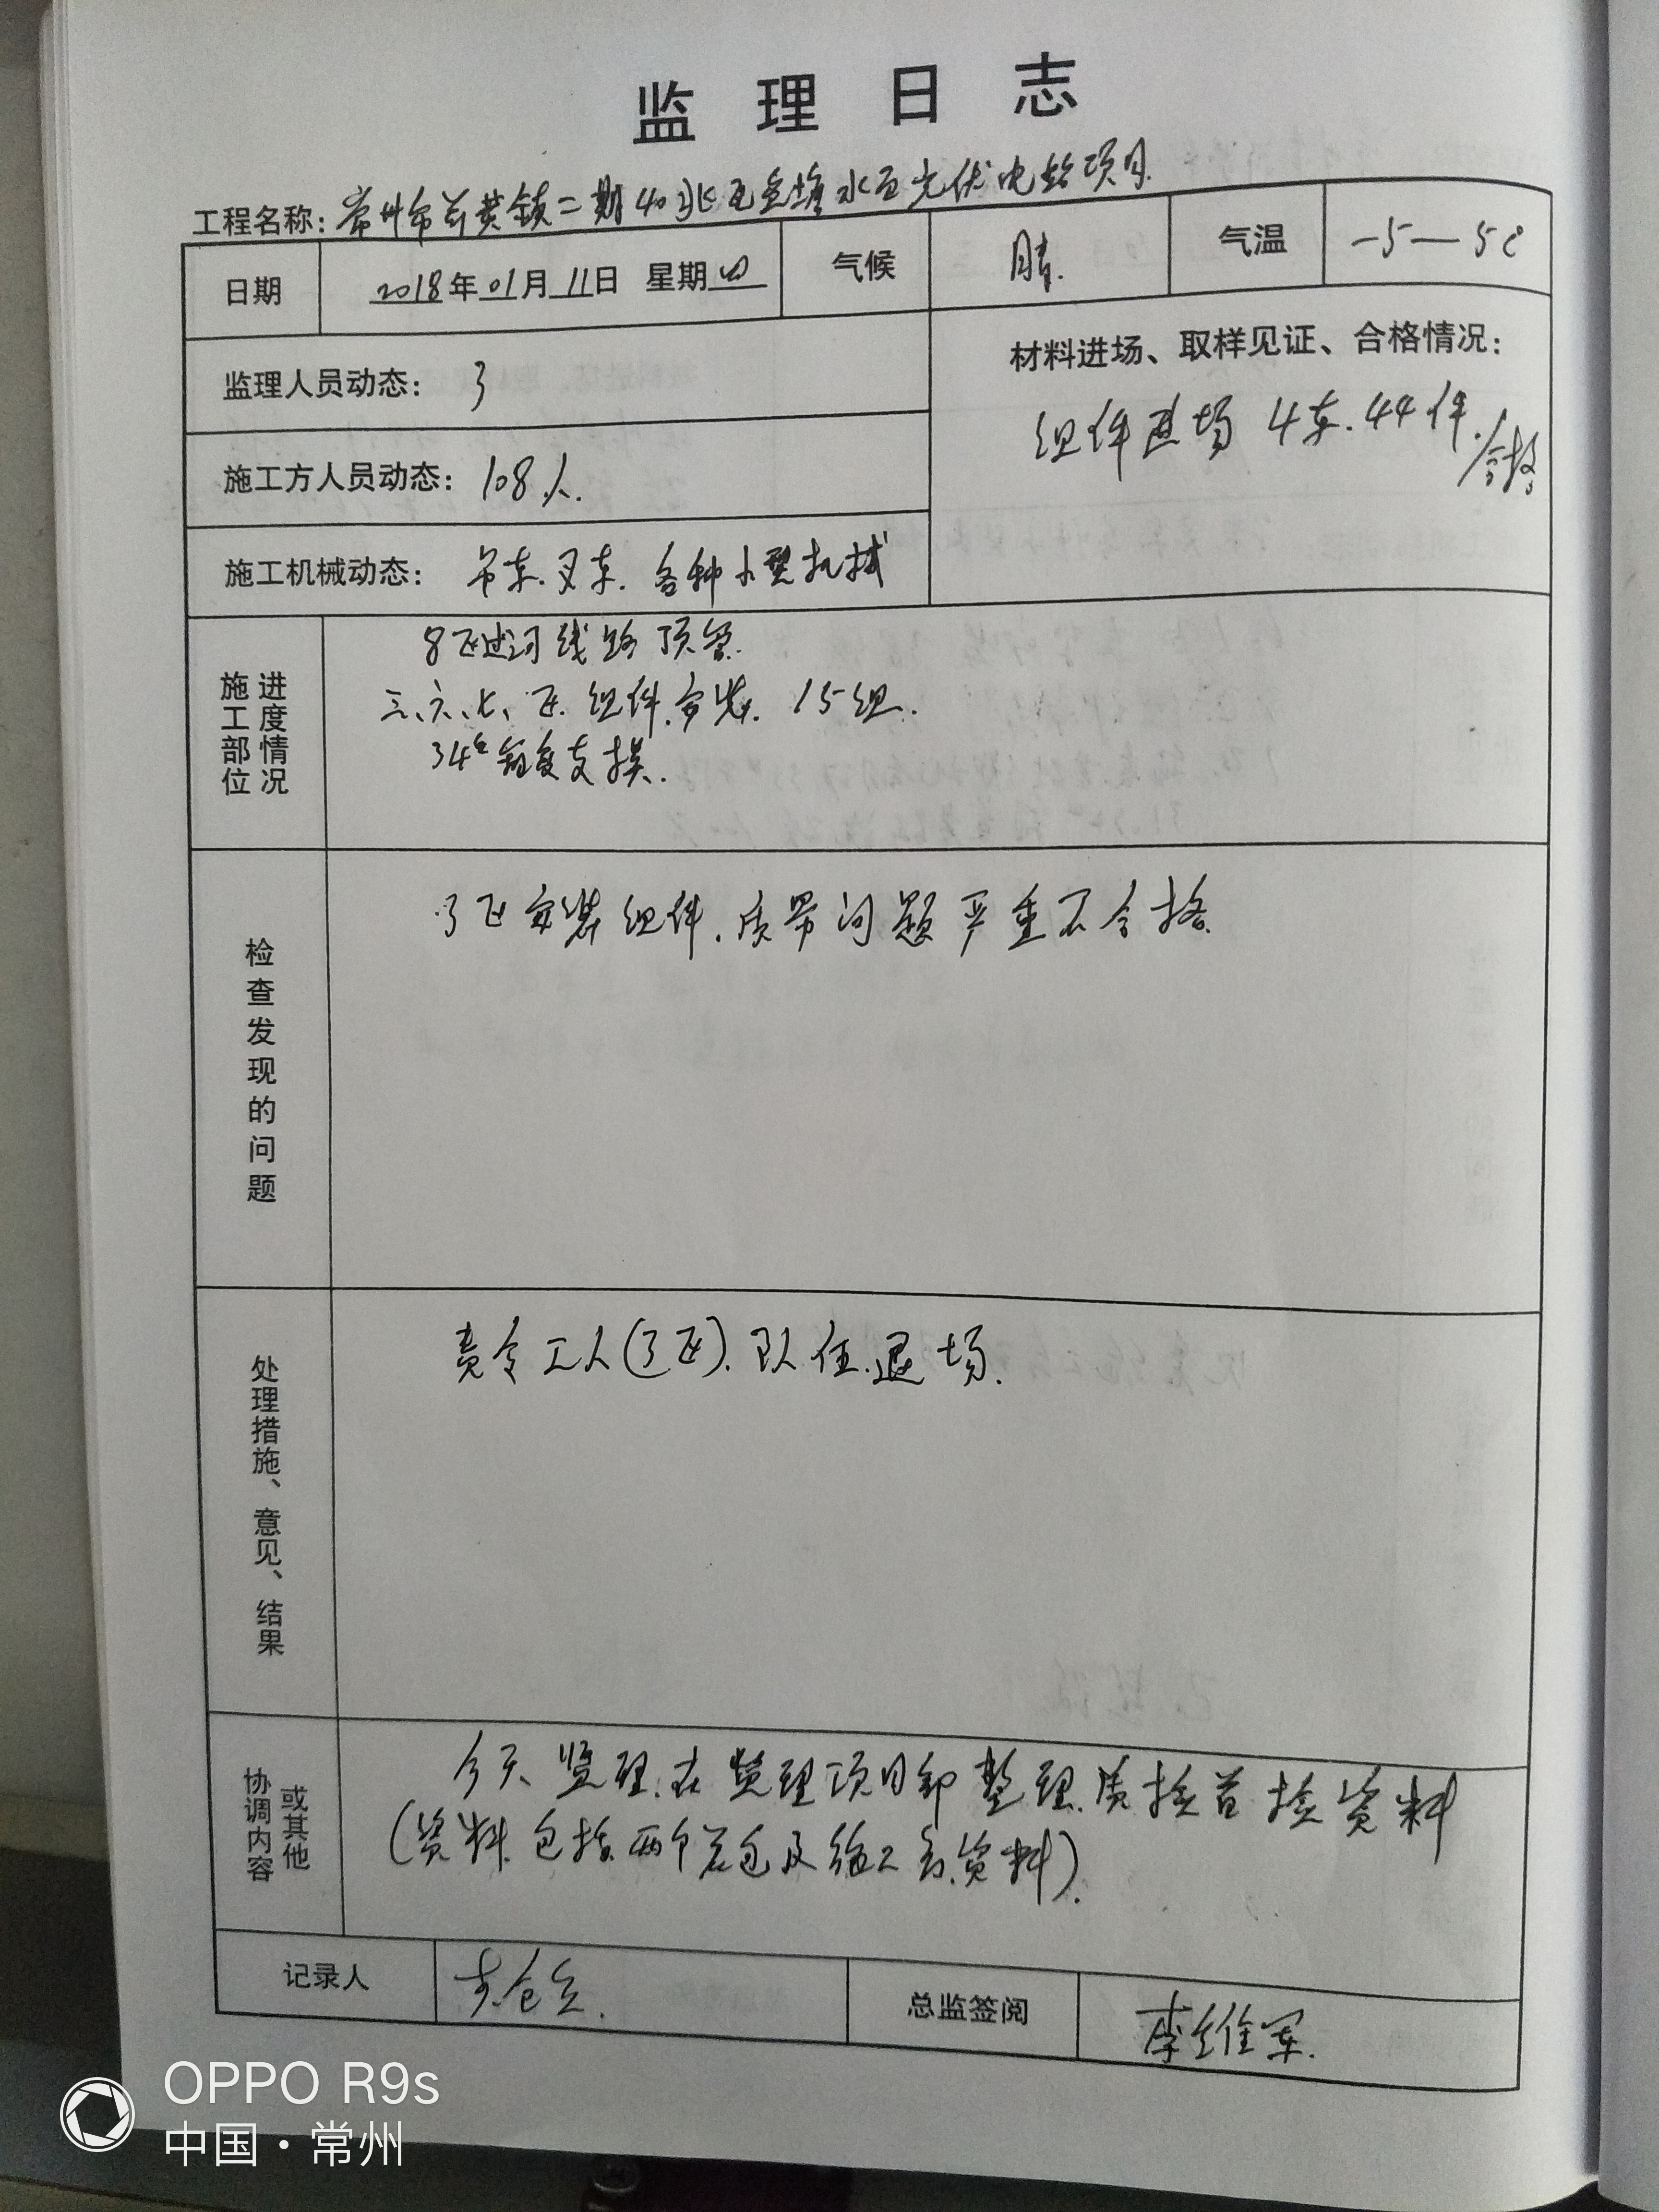 监理日志
工程名称：常州市前黄镇二期40兆瓦鱼塘水面光伏电站项目
日期 2018年01月11日 星期四 气候 晴. 气温 -5—5℃
监理人员动态： 3
材料进场、取样见证、合格情况：
组件进场 4车.44件./合格
施工方人员动态： 108人.
施工机械动态： 吊车.叉车. 各种小型机械
施工部位 进度情况
8区过河线路顶管.
三、六、七、区组件安装. 15组.
34#箱变支模.
检查发现的问题
3区安装组件.质量问题严重不合格.
处理措施、意见、结果
责令工人(3区).队伍退场.
协调内容 或其他
今天监理在监理项目部整理质检首检资料
(资料包括两个总包及施工方资料).
记录人 总监签阅 李维军.
OPPO R9s
中国·常州